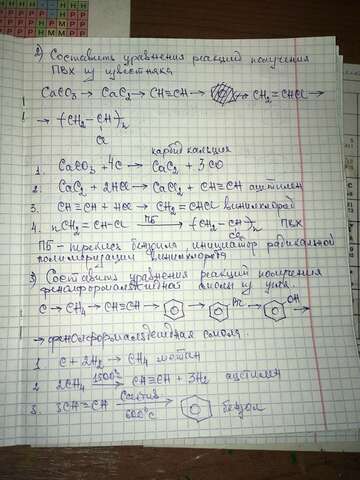 2) Составить уравнения реакций получения
ПВХ из известняка
CaCO3 → CaC2 → CH≡CH → CH2=CHCl →
→ (CH2 – CH)n
Cl
карбид кальция
1. CaCO3 + 4C → CaC2 + 3CO
2. CaC2 + 2HCl → CaCl2 + CH≡CH ацетилен
3. CH≡CH + HCl → CH2=CHCl винилхлорид
4. nCH2=CH-Cl ПБ → (CH2 – CH)n ПВХ
Cl
ПБ – перекись бензоила, инициатор радикальной
полимеризации винилхлорида
3) Составить уравнения реакций получения
фенолформальдегидной смолы из угля.
C → CH4 → CH≡CH → → Br → OH →
→ фенолформальдегидная смола.
1. C + 2H2 → CH4 метан
2 2CH4 1500° → CH≡CH + 3H2 ацетилен
3. 3CH≡CH Cактив 600°C → бензол